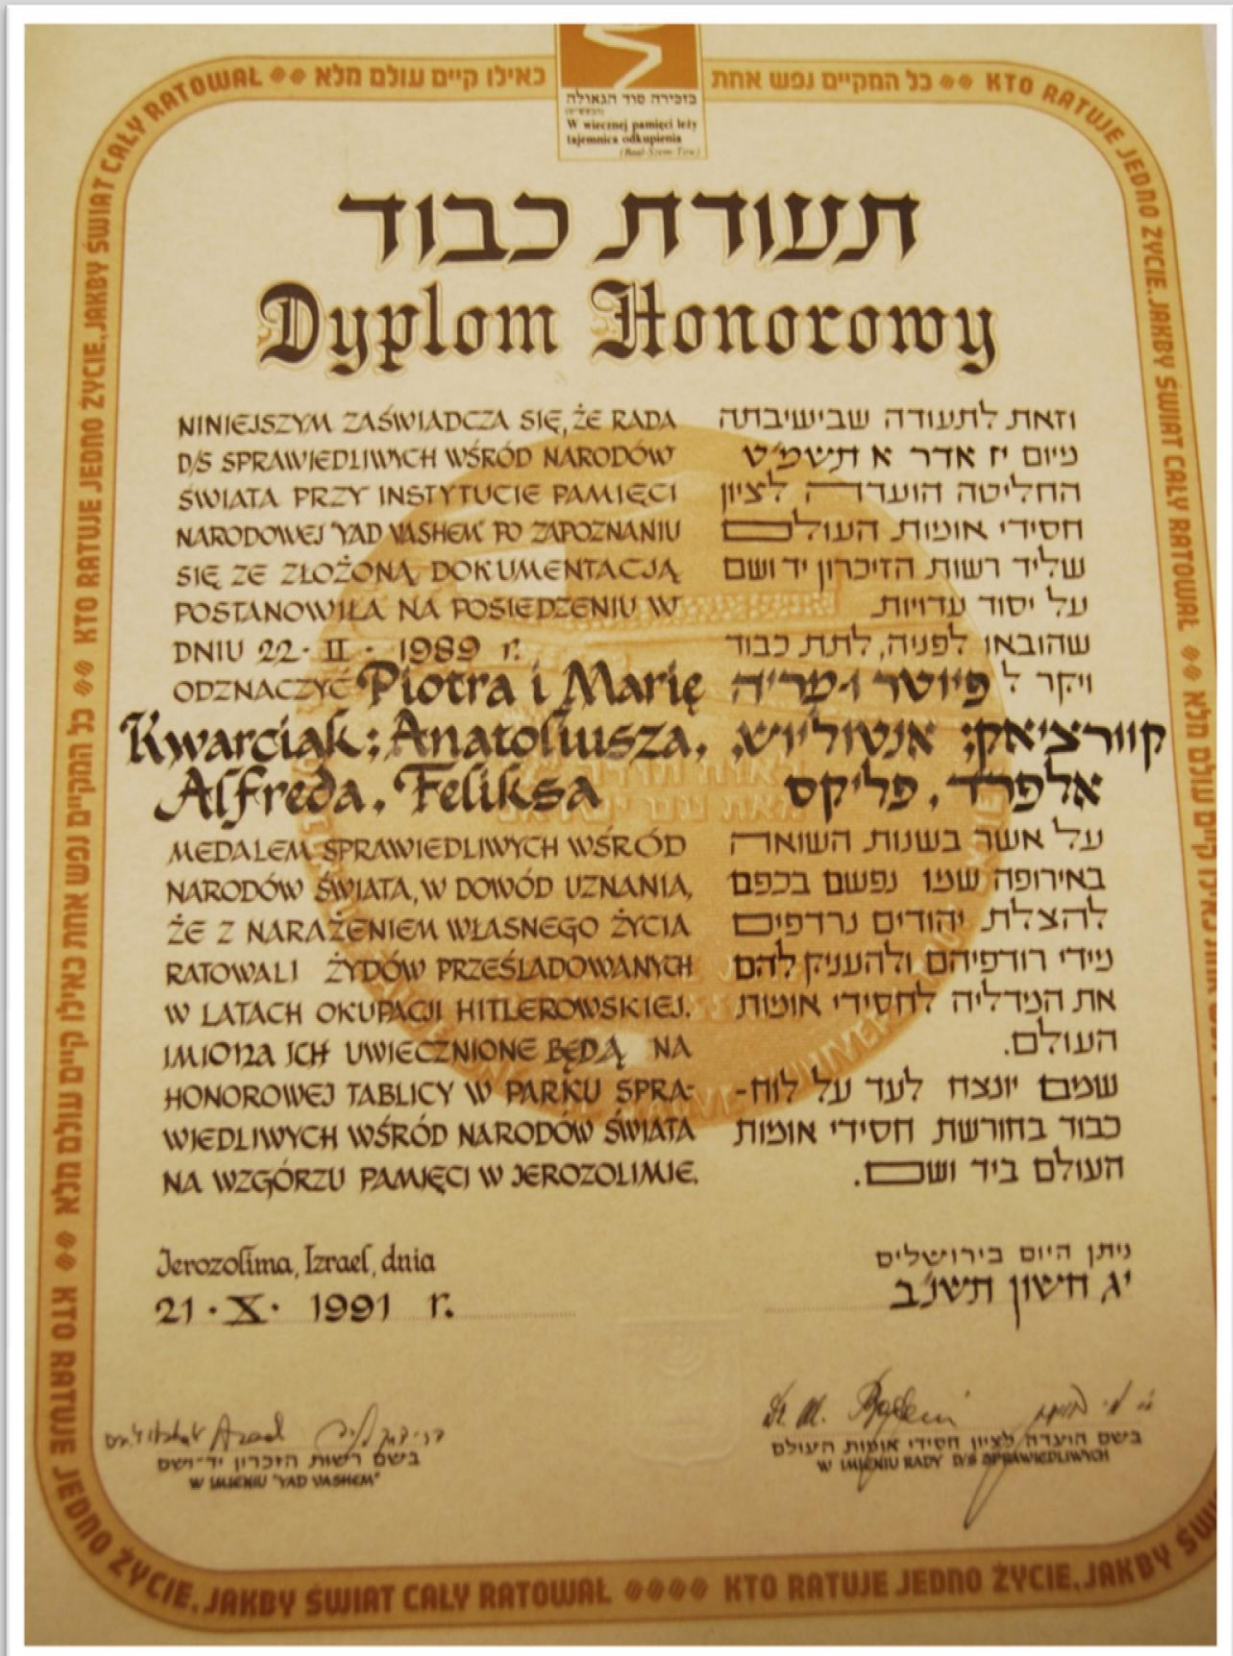 כל המקיים נפש אחת ** כאילו קיים עולם מלא
KTO RATUJE JEDNO ŻYCIE, JAKBY ŚWIAT CAŁY RATOWAŁ
בזכירה סוד הגאולה
W wiecznej pamięci leży
tajemnica odkupienia
(Baal-Szem-Tow)
תעודת כבוד
Dyplom Honorowy
NINIEJSZYM ZAŚWIADCZA SIĘ, ŻE RADA
D/S SPRAWIEDLIWYCH WŚRÓD NARODÓW
ŚWIATA PRZY INSTYTUCIE PAMIĘCI
NARODOWEJ "YAD VASHEM" PO ZAPOZNANIU
SIĘ ZE ZŁOŻONĄ DOKUMENTACJĄ
POSTANOWIŁA NA POSIEDZENIU W
DNIU 22 · II · 1989 r.
ODZNACZYĆ Piotra i Marię
Kwarciak; Anatoliusza,
Alfreda, Feliksa
MEDALEM SPRAWIEDLIWYCH WŚRÓD
NARODÓW ŚWIATA, W DOWÓD UZNANIA,
ŻE Z NARAŻENIEM WŁASNEGO ŻYCIA
RATOWALI ŻYDÓW PRZEŚLADOWANYCH
W LATACH OKUPACJI HITLEROWSKIEJ.
IMIONA ICH UWIECZNIONE BĘDĄ NA
HONOROWEJ TABLICY W PARKU SPRA-
WIEDLIWYCH WŚRÓD NARODÓW ŚWIATA
NA WZGÓRZU PAMIĘCI W JEROZOLIMIE.
וזאת לתעודה שבישיבתה
מיום יז אדר א תשמ"ט
החליטה הועדה לציון
חסידי אומות העולם
שליד רשות הזיכרון יד ושם
על יסוד עדויות
שהובאו לפניה, לתת כבוד
ויקר ל פיוטר ומריה
קוורציאק; אנטוליוש,
אלפרד, פליקס
על אשר בשנות השואה
באירופה שמו נפשם בכפם
להצלת יהודים נרדפים
מידי רודפיהם ולהעניק להם
את המדליה לחסידי אומות
העולם.
שמם יונצח לעד על לוח-
כבוד בחורשת חסידי אומות
העולם ביד ושם.
Jerozolima, Izrael, dnia
21 · X · 1991 r.
ניתן היום בירושלים
יג חשון תשנ"ב
בשם רשות הזכרון יד-ושם
W IMIENIU "YAD VASHEM"
בשם הועדה לציון חסידי אומות העולם
W IMIENIU RADY D/S SPRAWIEDLIWYCH
KTO RATUJE JEDNO ŻYCIE, JAKBY ŚWIAT CAŁY RATOWAŁ
KTO RATUJE JEDNO ŻYCIE, JAKBY ŚW